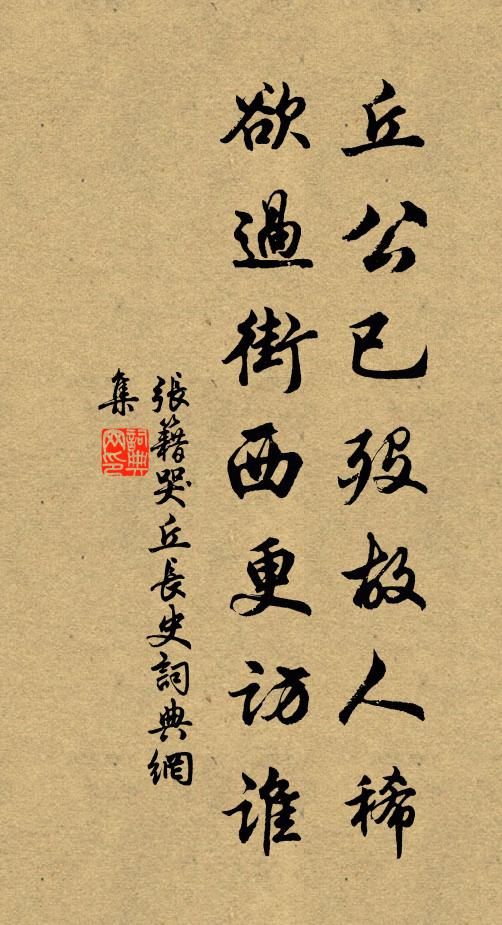 丘公已歿故人稀
欲過街西更訪誰
張籍哭丘長史詞典網
集
詞典
网印